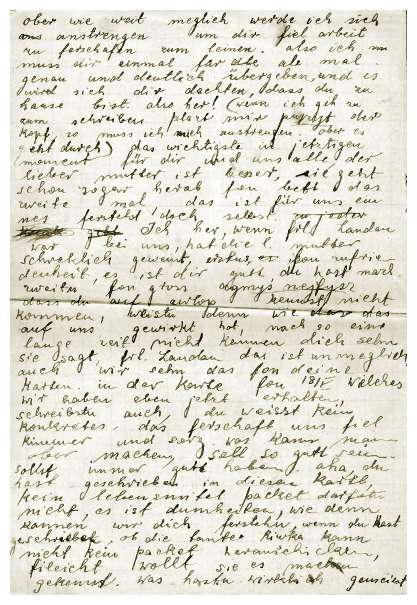 aber wie weit meglich werde ich sich
uns anstrengen um dir fiel arbeit
zu ferschafen zum leinen. also ich
muss dir einmal für alle male
genau und deutlich übergeben, und es
wird sich dir dachten, dass du zu
hause bist. also her! (wenn ich geh zu
zum schreiben plazt mir der
kopf, so muss ich mich anstrengen. aber es
geht durch) das wichtigste in jetzigen
moment für dir und uns alle der
lieber mutter ist beser, sie geht
schon sogar herab fon bett das
zweite mal, das ist für uns ein
nes ferstehst doch selbst.
Ich her, wenn frl. Landau
war bei uns, hat die l. mutter
schreklich geweint, erstns, es fon zufrie-
denheit, es ist dir gutt du hast
zweitns fon gross
dass du auf nicht
kommen, weisst denn wie das
auf uns gewirkt hat, nach so eine
lange zeit nicht kennen dich sehn
sie sagt, frl. Landau das ist unmeglich
auch wir sehn das fon deine
karten. in der Karte fon 18/V welches
wir haben eben jetzt erhalten,
schreibstu auch, du weisst kein
konkretes. das ferschaft uns fiel
kinemer und sorg. was kann man
aber machen, soll so gutt sein
sollst immer gutt haben. aha, du
hast geschrieben in diesen Kartl,
kein lebensmitel packet darfstu
nicht, es ist dumheiten, wie denn
kannen wir dich ferstehn, wenn du hast
geschrieben, ob die tante Riwka kann
nicht kein packet herausschicken,
fileicht wollt sie es machen
gekennt. was hastu wirklich gemeint